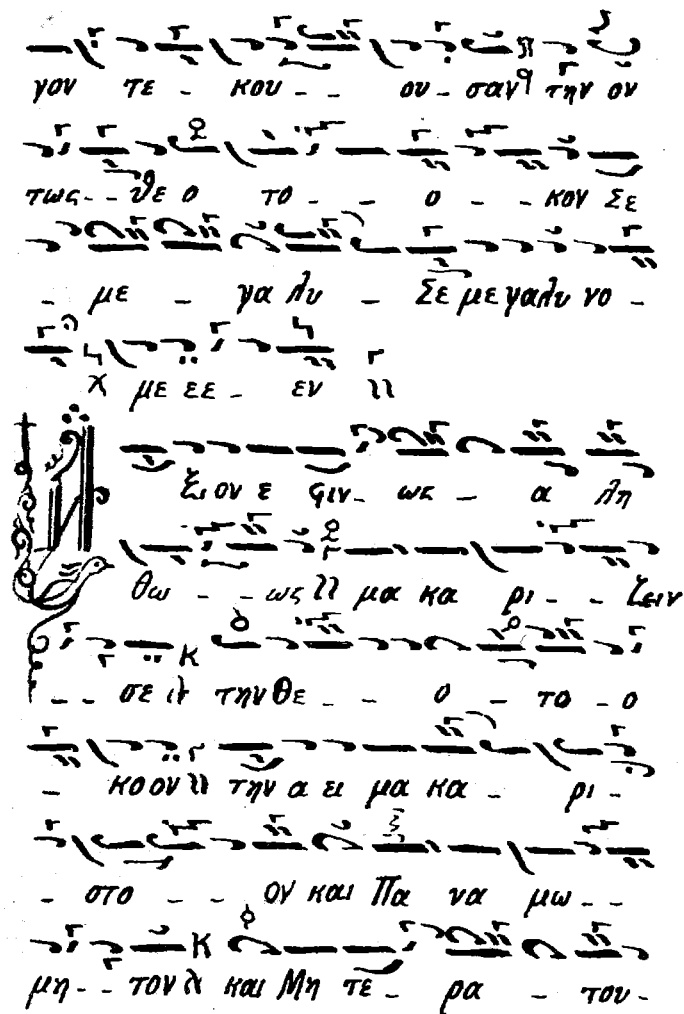 γον τε - κου - - ου - σαν την ον
τως - - θε ο το - - ο - - κον Σε
- με - γα λυ - Σε με γα λυ νο -
με εε - εν
ξι ον ε ςιν - ως - α λη
θω - - ως μα κα ρι - - ζειν
- - σε την Θε - - ο - το - ο
- κο ον την α ει μα κα - ρι -
- στο - - - ον και Πα να μω - -
μη - - τον και Μη τε - ρα - του -